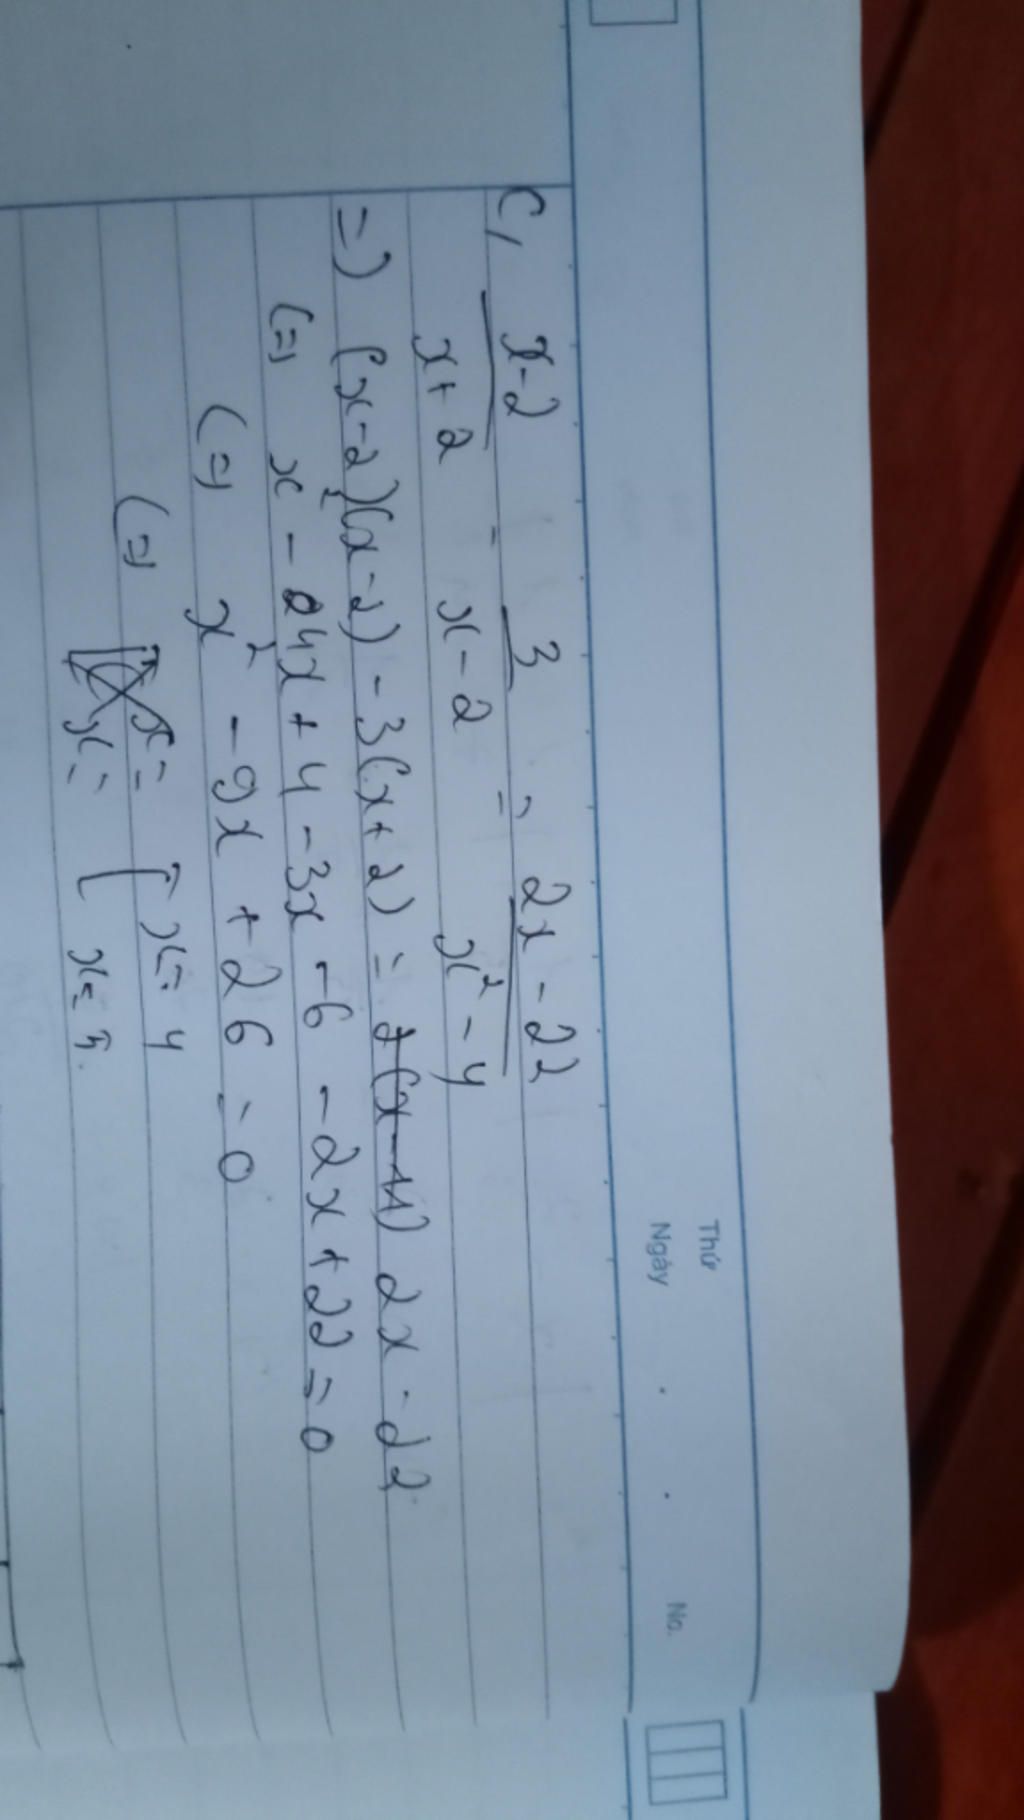 Thứ
Ngày . . No.
C, x-2/x+2 - 3/x-2 = 2x-22/x²-4
=) (x-2)(x-2) - 3(x+2) = 2x-22
(=) x² - 4x + 4 - 3x - 6 - 2x + 22 = 0
(=) x² - 9x + 26 = 0
(=) [ x= 4
x= 5